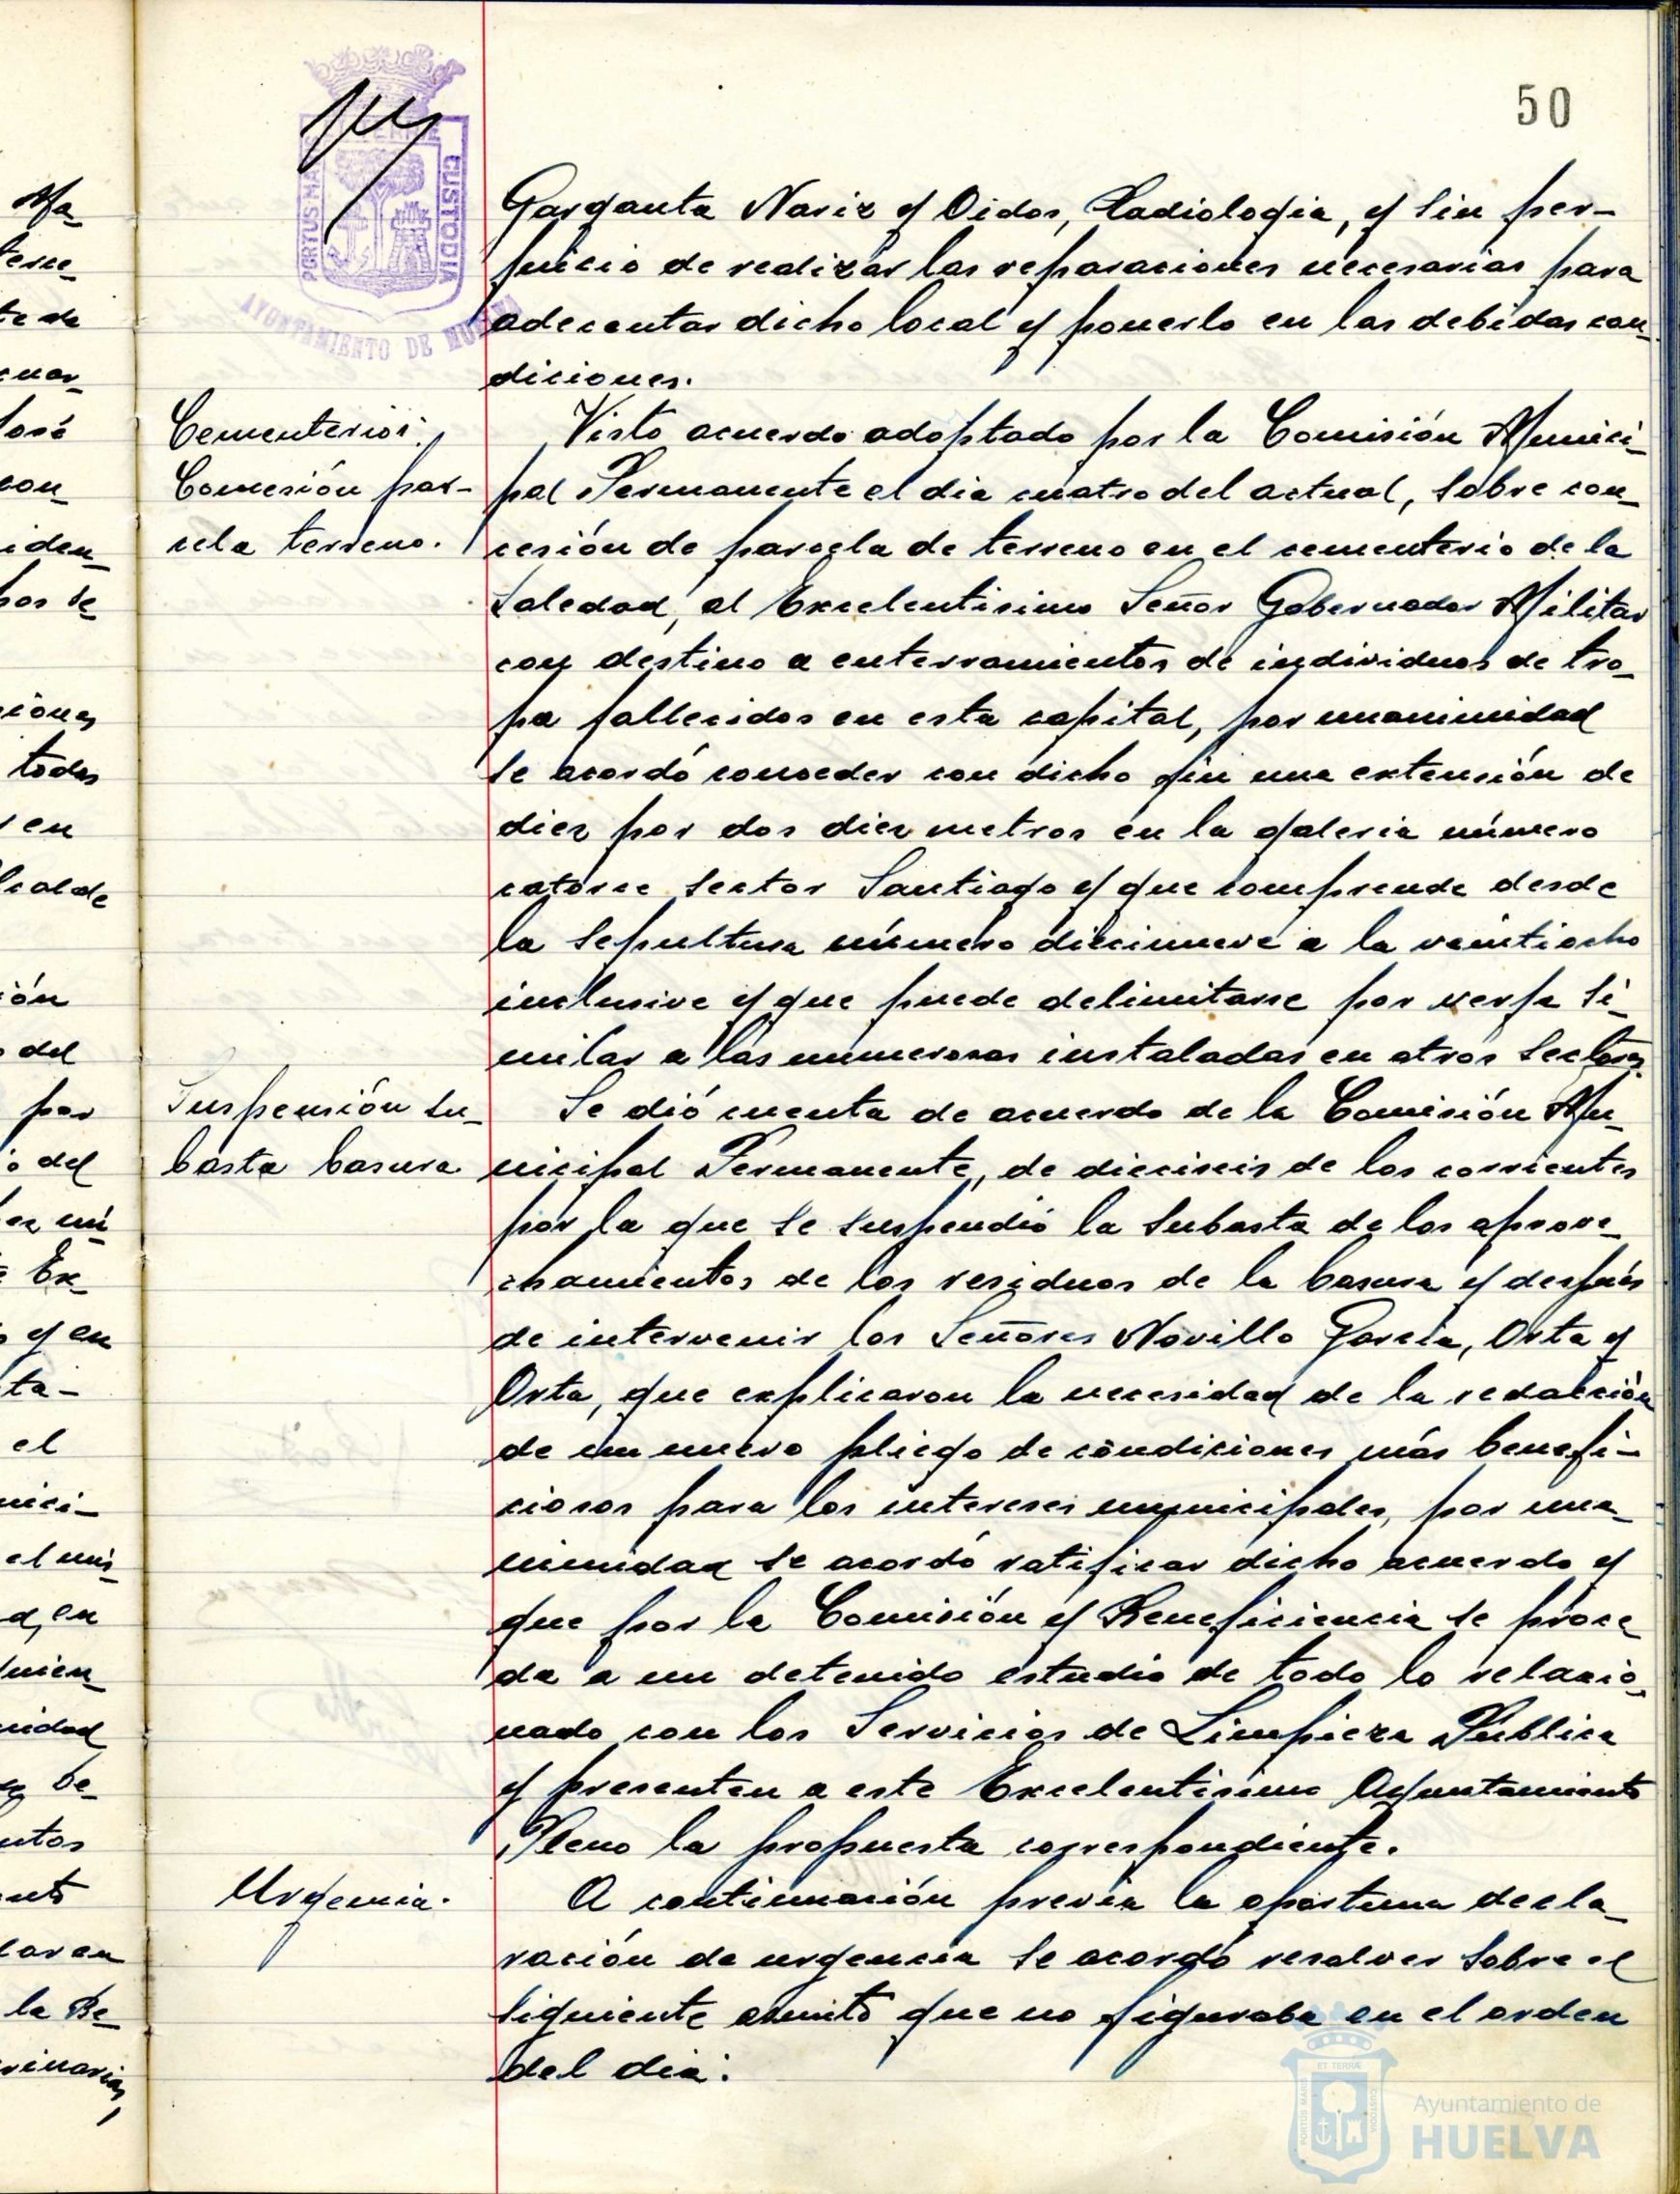 50
Garganta Nariz y Oidos, Radiologia, y sin per-
juicio de realizar las reparaciones necesarias para
adecentar dicho local y ponerlo en las debidas con-
diciones.
Cementerios:
Concesión par-
cela terreno.
Visto acuerdo adoptado por la Comisión Munici-
pal Permanente el dia cuatro del actual, sobre con-
cesión de parcela de terreno en el cementerio de la
Soledad, al Excelentisimo Señor Gobernador Militar
con destino a enterramientos de individuos de tro-
pa fallecidos en esta capital, por unanimidad
se acordó conceder con dicho fin una extensión de
diez por dos diez metros en la galeria número
catorce sector Santiago y que comprende desde
la sepultura número diecinueve a la veintiocho
inclusive y que puede delimitarse por verja si-
milar a las numerosas instaladas en otros sectores.
Suspensión su-
basta basura
Se dió cuenta de acuerdo de la Comisión Mu-
nicipal Permanente, de dieciseis de los corrientes
por la que se suspendió la subasta de los aprove-
chamientos de los residuos de la basura y después
de intervenir los Señores Novillo García, Orta y
Orta, que explicaron la necesidad de la redacción
de un nuevo pliego de condiciones más benefi-
ciosos para los intereses municipales, por una-
nimidad se acordó ratificar dicho acuerdo y
que por la Comisión y Beneficiencia se proce-
da a un detenido estudio de todo lo relacio-
nado con los Servicios de Limpieza Pública
y presenten a este Excelentisimo Ayuntamiento
Pleno la propuesta correspondiente.
Urgencia.
A continuación previa la oportuna decla-
ración de urgencia se acordó resolver sobre el
siguiente asunto que no figuraba en el orden
del dia:
PORTUS MA
CUSTODIA
AYUNTAMIENTO DE HUELVA
Ayuntamiento de
HUELVA